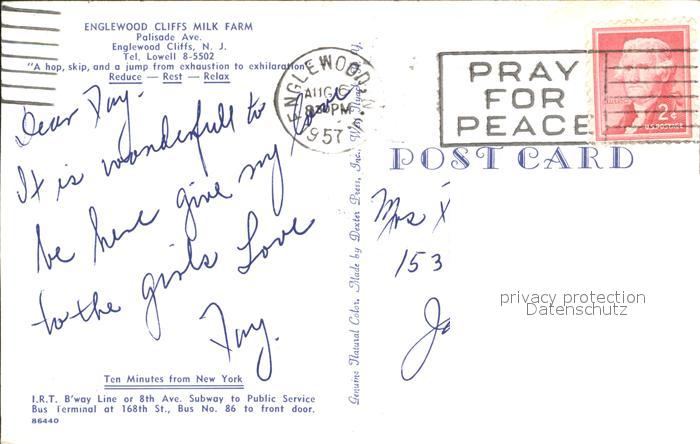 ENGLEWOOD CLIFFS MILK FARM
Palisade Ave.
Englewood Cliffs, N. J.
Tel. Lowell 8-5502
"A hop, skip, and a jump from exhaustion to exhilaration"
Reduce — Rest — Relax
Dear Fay.
It is wonderfull to
be here give my love
to the girls Love
Fay.
Ten Minutes from New York
I.R.T. B'way Line or 8th Ave. Subway to Public Service
Bus Terminal at 168th St., Bus No. 86 to front door.
86440
Genuine Natural Color. Made by Dexter Press, Inc., West Nyack, N.Y.
ENGLEWOOD, N.J.
AUG 6
8 30 PM
1957
PRAY
FOR
PEACE
2¢
U.S. POSTAGE
POST CARD
Mrs
153
privacy protection
Datenschutz